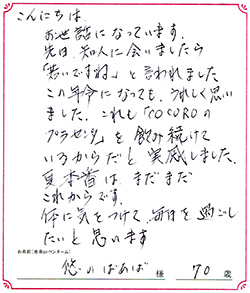 こんにちは。
お世話になっています。
先日、知人に会いましたら
「若いですね」と言われました
この年令になっても、うれしく思い
ました。これも「COCOROの
プラセンタ」を飲み続けて
いるからだと実感しました。
夏本番は まだまだ
これからです。
体に気をつけて、毎日を過ごし
たいと思います
お名前(本名orペンネーム)
悠のばあば 様 70 歳